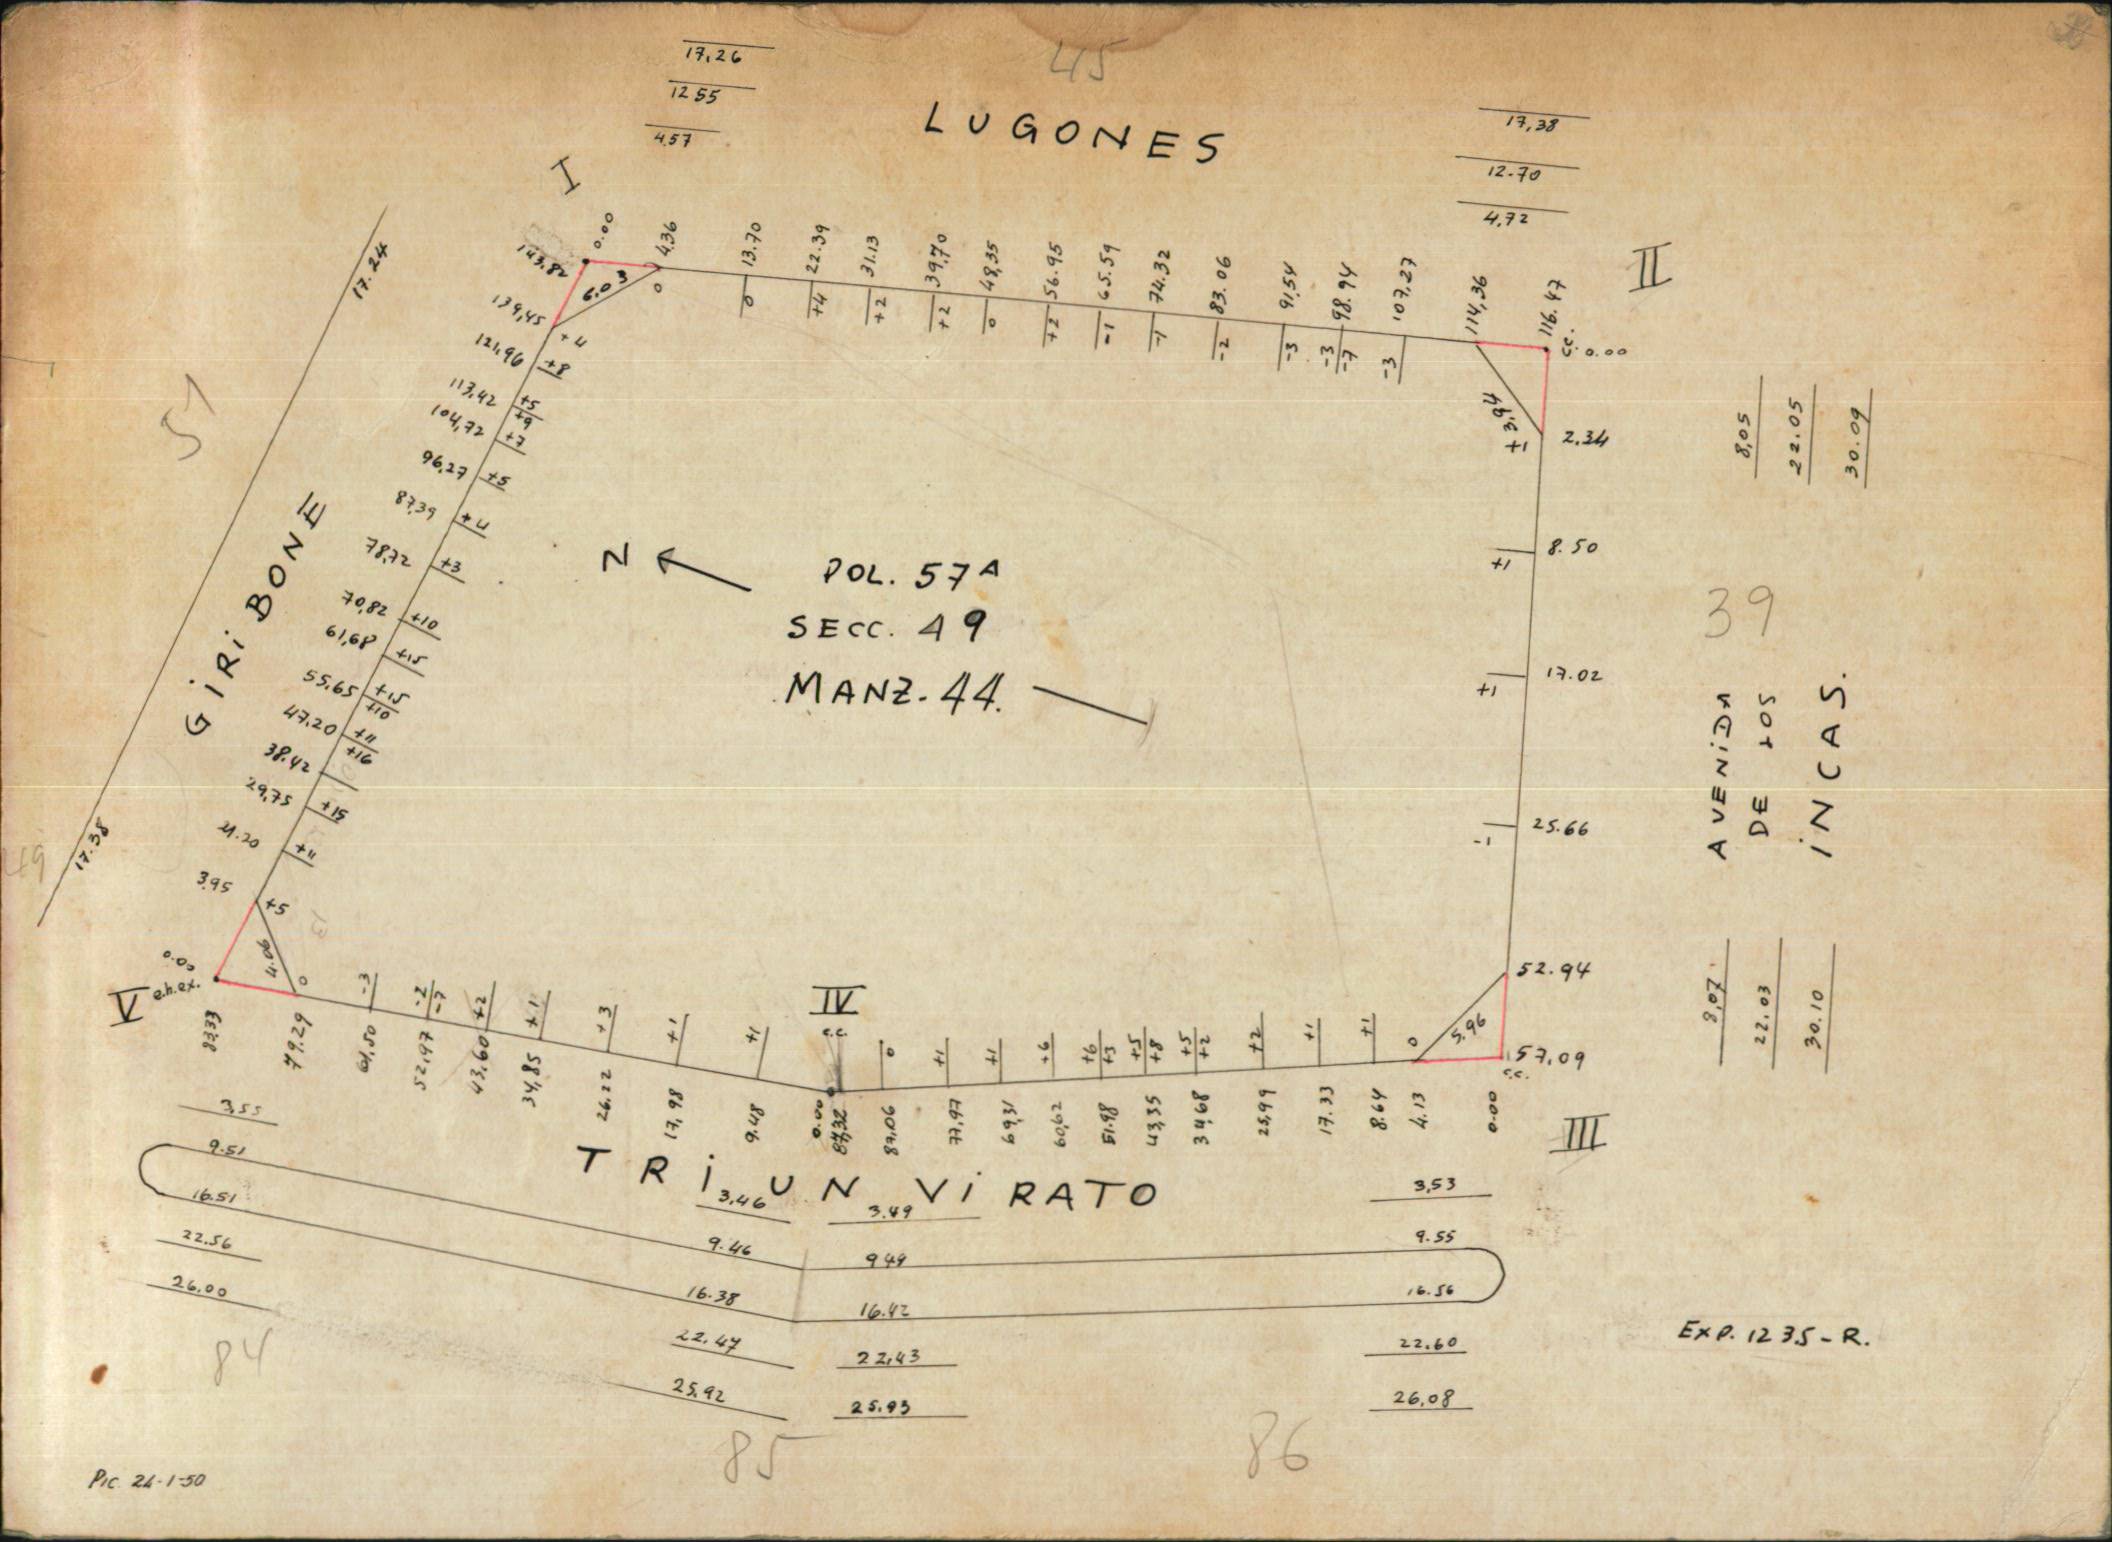 17,26
12 55
4.57
45
LUGONES
17,38
12.70
4,72
I
II
0.00
4,36
13.70
22.39
31.13
39,70
48,35
56.95
65.59
74.32
83.06
91,54
98.94
107,27
114,36
116.47
c.c. 0.00
0
0
+4
+2
+2
0
+2
-1
-1
-2
-3
-3
-7
-3
143,82
139,45
121,96
113,42
104,72
96,27
87,39
78,72
70,82
61,68
55,65
47.20
38.42
29,75
21.20
3.95
0.00
e.h.ex.
6.03
+4
+8
+5
+9
+7
+5
+4
+3
+10
+15
+15
+10
+11
+16
+15
+11
+5
17.24
17.38
51
49
GIRIBONE
3,94
+1
2.34
+1
8.50
+1
17.02
-1
25.66
52.94
57,09
c.c.
8,05
22.05
30.09
39
AVENIDA
DE LOS
INCAS.
8,07
22.03
30.10
N
POL. 57A
SECC. 49
MANZ. 44.
V
IV
c.c.
III
4.06
0
-3
-2
-7
+2
+1
+3
+1
+1
0
+1
+1
+6
+6
+3
+5
+8
+5
+2
+2
+1
+1
0
5.96
83,33
79.29
61,50
52,97
43,60
34,85
26.22
17,98
9.48
0.00
87,32
87,06
77,97
69,31
60,62
51.98
43,35
34,68
25,99
17.33
8.64
4.13
0.00
TRIUNVIRATO
3,55
9.51
16.51
22.56
26.00
3,46
9.46
16.38
22.47
25,92
3.49
9.49
16.42
22,43
25.93
3,53
9.55
16.56
22.60
26,08
84
85
86
EXP. 1235-R.
Pic. 24-1-50